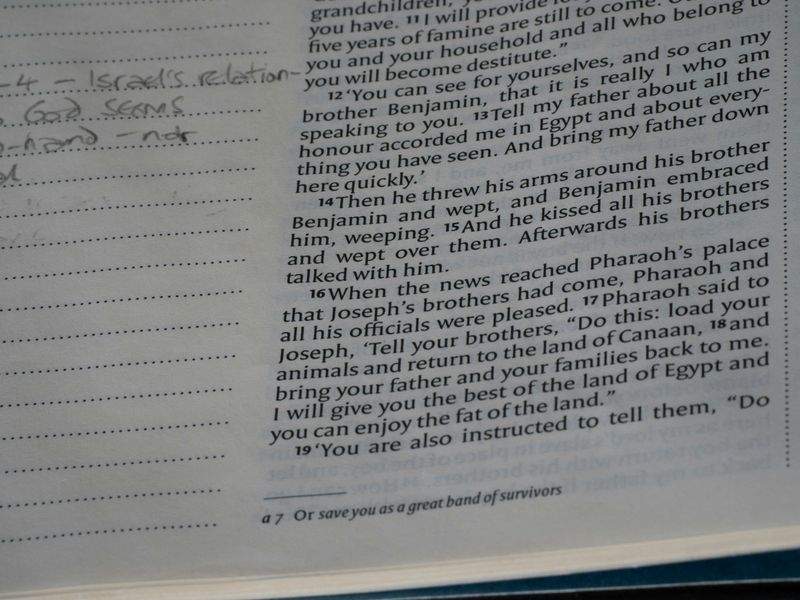 -4 - Israel's relation-
God seems
-hand - not
grandchildren,
you have. 11 I will provide
five years of famine are still to come.
you and your household and all who belong to
you will become destitute."
12 'You can see for yourselves, and so can my
brother Benjamin, that it is really I who am
speaking to you. 13 Tell my father about all the
honour accorded me in Egypt and about every-
thing you have seen. And bring my father down
here quickly.'
14 Then he threw his arms around his brother
Benjamin and wept, and Benjamin embraced
him, weeping. 15 And he kissed all his brothers
and wept over them. Afterwards his brothers
talked with him.
16 When the news reached Pharaoh's palace
that Joseph's brothers had come, Pharaoh and
all his officials were pleased. 17 Pharaoh said to
Joseph, 'Tell your brothers, "Do this: load your
animals and return to the land of Canaan, 18 and
bring your father and your families back to me.
I will give you the best of the land of Egypt and
you can enjoy the fat of the land."
19 'You are also instructed to tell them, "Do
a 7 Or save you as a great band of survivors